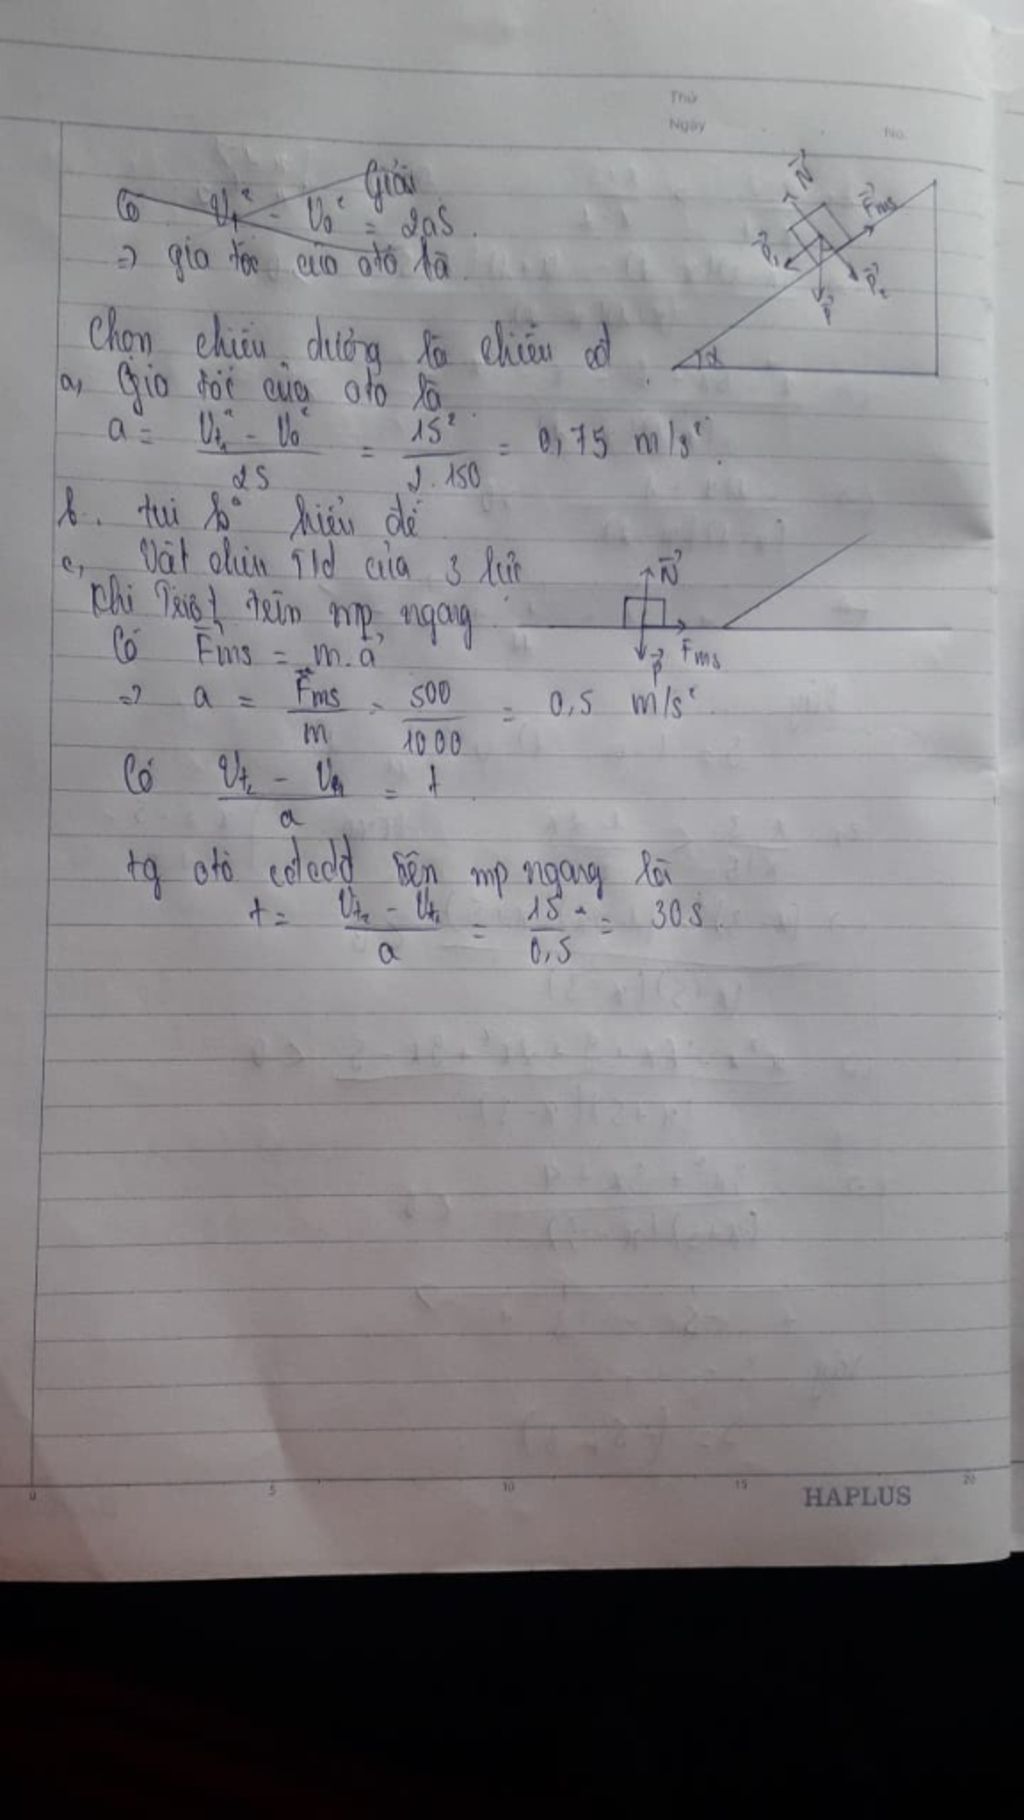 Thứ
Ngày No.
Giải
Có Vt₁² - V₀² = 2aS.
⇒ gia tốc của oto là
N Fms P₁ P₂ P α
Chọn chiều dương là chiều cđ
a, Gia tốc của oto là
a = (Vt₁² - V₀²) / 2S = 15² / 2.150 = 0,75 m/s².
b. tui k° hiểu đề
c, Vật chịu T/d của 3 lực
N P Fms
Khi Trượt trên mp ngang
Có Fms = m.a
⇒ a = Fms / m = 500 / 1000 = 0,5 m/s².
Có (Vt₂ - Vt₁) / a = t
tg oto cđcdđ trên mp ngang là
t = (Vt₂ - Vt₁) / a = 15 / 0,5 = 30s.
0 5 10 15 20
HAPLUS